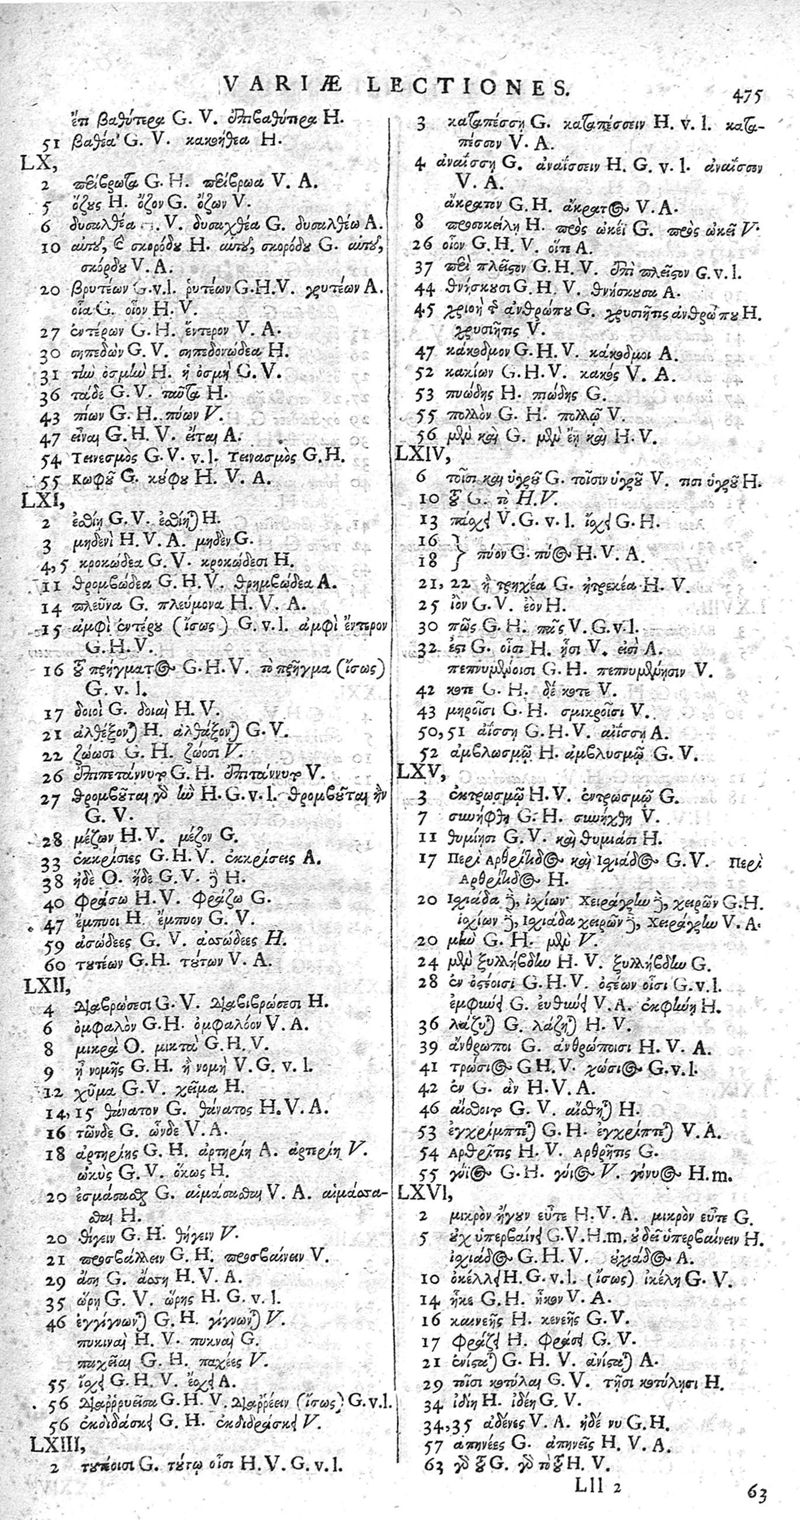 VARIÆ LECTIONES.
475
ἔπι βαθύτερα G. V. ἐπιβαθύτερα H.
51 βαθέα G. V. κακοήθεα H.
LX,
2 περίβρωτα G. H. περίβρωα V. A.
5 ὄζους H. ὄζον G. ὄζων V.
6 δυσαλθέα H. V. δυσαχθέα G. δυσαλθέω A.
10 αὐτοῦ, ἐκ σκορόδου H. αὐτοῦ, σκορόδου G. αὐτοῦ,
σκόρδου V. A.
20 βρυτέων G.v.l. ῥυτέων G.H.V. χυτέων A.
οἷα G. οἷον H. V.
27 ἐντέρων G. H. ἔντερον V. A.
30 σηπεδὼν G. V. σηπεδονώδεα H.
31 τὴν ὀσμὴν H. ἡ ὀσμὴ G. V.
36 τάδε G. V. ταῦτα H.
43 πίων G. H. πύων V.
47 εἶναι G. H. V. εἶται A.
54 Τεινεσμὸς G. V. v. l. Τεινασμὸς G. H.
55 κωφοῦ G. κούφου H. V. A.
LXI,
2 ἐσθίῃ G. V. ἐσθίηται H.
3 μηδενὶ H. V. A. μηδὲν G.
4, 5 κροκώδεα G. V. κροκώδεσι H.
11 θρομβώδεα G. H. V. θρημβώδεα A.
14 πλεῦνα G. πλεύμονα H. V. A.
15 ἀμφὶ ἐντέρου (ἴσως) G. v. l. ἀμφὶ ἔντερον
G. H. V.
16 τοῦ πρήγματος G. H. V. τὸ πρῆγμα (ἴσως)
G. v. l.
17 δοιοὶ G. δοιαὶ H. V.
21 ἀλθέξονται H. ἀλθάξονται G. V.
22 ζώωσι G. H. ζώοσι V.
26 ἐπιπετάννυται G. H. ἐπιτάννυται V.
27 θρομβοῦται γὰρ ἢν H. G. v. l. θρομβοῦται ἢν
G. V.
28 μέζων H. V. μέζον G.
33 ἐκκρίσιες G. H. V. ἐκκρίσεις A.
38 ἠδὲ O. ἥδε G. V. ἢ H.
40 φράσω H. V. φράζω G.
47 ἔμπυοι H. ἔμπυον G. V.
59 ἀσώδεες G. V. ἀοσώδεες H.
60 τουτέων G. H. τούτων V. A.
LXII,
4 διαβρώσεσι G. V. διαβιβρώσεσι H.
6 ὀμφαλὸν G. H. ὀμφαλόον V. A.
8 μικρὰ O. μικτὰ G. H. V.
9 ἢ νομῆς G. H. ἢ νομὴ V. G. v. l.
12 χῦμα G. V. χεῖμα H.
14, 15 θάνατον G. θάνατος H. V. A.
16 τῶνδε G. ὧνδε V. A.
18 ἀρτηρίης G. H. ἀρτηρίη A. ἀρτερίη V.
ὠκὺς G. V. ὅκως H.
20 G. V. A.
H.
20 θίγειν G. H. θήγειν V.
21 προσβάλλειν G. H. προσβαίνειν V.
29 ἄση G. ἄοση H. V. A.
35 ὥρη G. V. ὥρης H. G. v. l.
46 ἐγγίγνωνται G. H. γίγνωνται V.
πυκιναὶ H. V. πυκναὶ G.
παχεῖαι G. H. παχέες V.
55 ἴσχει G. H. V. ἔσχει A.
56 διαῤῥυεῖσα G. H. V. διαῤῥέειν (ἴσως) G. v. l.
56 ἐκδιδάσκει G. H. ἐκδιδράσκει V.
LXIII,
2 τουτέοισι G. τούτῳ οἷσι H. V. G. v. l.
3 καταπέσσῃ G. καταπέσσειν H. v. l. κατα-
πέσσον V. A.
4 ἀναΐσσῃ G. ἀναΐσσειν H. G. v. l. ἀναΐσσον
V. A.
ἄκρατον G. H. ἄκρατος V. A.
8 προσοκείλῃ H. πρὸς ὠκέϊ G. πρὸς ὠκεῖ V.
26 οἷον G. H. V. οἵτι A.
37 περὶ πλεῖστον G. H. V. ἐπὶ πλεῖστον G. v. l.
44 θνήσκουσι G. H. V. θνήσκουσα A.
45 χροιὴ τοῦ ἀνθρώπου G. χρυσιῆτις ἀνθρώπου H.
χρυσιῆτις V.
47 κάκοδμον G. H. V. κάκοδμοι A.
52 κακίων G. H. V. κακός V. A.
53 πυώδης H. πιώδης G.
55 πολλὸν G. H. πολλῷ V.
56 μὲν καὶ G. μὲν ἔῃ καὶ H. V.
LXIV,
6 τοῖσι καὶ ὑγροῦ G. τοῖσιν ὑγροῦ V. τισι ὑγροῦ H.
10 τοῦ G. τὸ H. V.
13 πάσχει V. G. v. l. ἴσχει G. H.
16
18 } πύον G. πύος H. V. A.
21, 22 ἢ τρηχέα G. ἠτρεκέα H. V.
25 ἰὸν G. V. ἐὸν H.
30 πῶς G. H. παῖς V. G. v. l.
32 ἔτι G. οἷσι H. ᾗσι V. εἰσὶ A.
πεπνυμένοισι G. H. πεπνυμένησιν V.
42 κοτε G. H. δέ κοτε V.
43 μηροῖσι G. H. σμικροῖσι V.
50, 51 ἀΐσσῃ G. H. V. αἴσσῃ A.
52 ἀμβλωσμῷ H. ἀμβλυσμῷ G. V.
LXV,
3 ἐκτρωσμῷ H. V. ἐντρωσμῷ G.
7 συνήφθη G. H. συνήχθη V.
11 θυμίησι G. V. καὶ θυμιάσι H.
17 Περὶ Ἀρθρίτιδος καὶ Ἰσχιάδος G. V. Περὶ
Ἀρθρίτιδος H.
20 Ἰσχιὰς δὲ, ἰσχίων· Χειράγρην δὲ, χειρῶν G. H.
ἰσχίων δὲ, Ἰσχιάδα χειρῶν δὲ, Χειράγρην V. A.
20 μὴν G. H. μὲν V.
24 μὲν ξυλλήβδην H. V. ξυλλήβδην G.
28 ἐν ὀστέοισι G. H. V. ὀστέων οἷσι G. v. l.
ἐμφανεῖ G. εὐθανεῖ V. A. ἐκφανῆ H.
36 λάζυται G. λάζηται H. V.
39 ἄνθρωποι G. ἀνθρώποισι H. V. A.
41 τρώσιος G H. V. χώσιος G. v. l.
42 ἐν G. ἂν H. V. A.
46 αἴσθοιτο G. V. αἴσθηται H.
53 ἐγχρίμπτεται G. H. ἐγχρίπτεται V. A.
54 Ἀρθρῖτις H. V. Ἀρθρῆτις G.
55 γυίος G. H. γύϊος V. γόνυος H. m.
LXVI,
2 μικρὸν ἤγουν εὖτε H. V. A. μικρὸν εὖτε G.
5 οὐχ ὑπερβαίνει G. V. H. m. οὐδεὶ ὑπερβαίνειν H.
ἰσχιάδος G. H. V. οὐχιάδος A.
10 ὀκέλλει H. G. v. l. (ἴσως) ἱκέλη G. V.
14 ἧκε G. H. ἧκον V. A.
16 καινεῆς H. κενεῆς G. V.
17 φράζει H. φράσει G. V.
21 ἐνίσταται G. H. V. ἀνίσταται A.
29 τοῖσι κοτύλαι G. V. τῇσι κοτύλῃσι H.
34 ἰδίῃ H. ἰδέῃ G. V.
34, 35 ἀδένες V. A. ἠδέ νυ G. H.
57 ἀπηνέες G. ἀπηνεῖς H. V. A.
63 γὰρ τοῦ G. γὰρ τὸ τοῦ H. V.
Lll 2
63